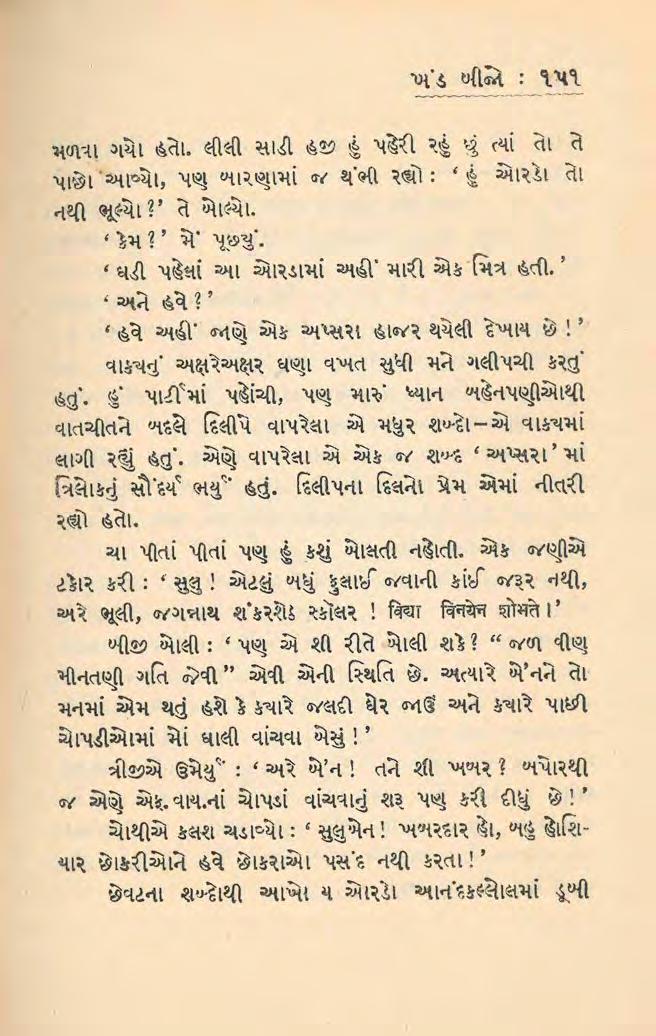 ખંડ બીજો : ૧૫૧
મળવા ગયો હતો. લીલી સાડી હજી હું પહેરી રહું છું ત્યાં તો તે
પાછો આવ્યો, પણ બારણામાં જ થંભી રહ્યો : ‘ હું ઓરડો તો
નથી ભૂલ્યો ?’ તે બોલ્યો.
‘ કેમ ?’ મેં પૂછયું.
‘ ઘડી પહેલાં આ ઓરડામાં અહીં મારી એક મિત્ર હતી.’
‘ અને હવે ?’
‘ હવે અહીં જાણે એક અપ્સરા હાજર થયેલી દેખાય છે !’
વાક્યનું અક્ષરેઅક્ષર ઘણા વખત સુધી મને ગલીપચી કરતું
હતું. હું પાર્ટીમાં પહોંચી, પણ મારું ધ્યાન બહેનપણીઓથી
વાતચીતને બદલે દિલીપે વાપરેલા એ મધુર શબ્દો—એ વાક્યમાં
લાગી રહ્યું હતું. એણે વાપરેલા એ એક જ શબ્દ ‘ અપ્સરા ’માં
ત્રિલોકનું સૌંદર્ય ભર્યું હતું. દિલીપના દિલનો પ્રેમ એમાં નીતરી
રહ્યો હતો.
ચા પીતાં પીતાં પણ હું કશું બોલતી નહોતી. એક જણીએ
ટકોર કરી : ‘ સુલુ ! એટલું બધું ફુલાઈ જવાની કાંઈ જરૂર નથી,
અરે ભૂલી, જગન્નાથ શંકરશેઠ સ્કૉલર ! विद्या विनयेन शोभते ।’
બીજી બોલી : ‘ પણ એ શી રીતે બોલી શકે ? “ જળ વીણ
મીનતણી ગતિ જેવી ” એવી એની સ્થિતિ છે. અત્યારે બે’નને તો
મનમાં એમ થતું હશે કે ક્યારે જલદી ઘેર જાઉં અને ક્યારે પાછી
ચોપડીઓમાં મોં ઘાલી વાંચવા બેસું !’
ત્રીજીએ ઉમેર્યું : ‘ અરે બે’ન ! તને શી ખબર ? બપોરથી
જ એણે એફ.વાય.નાં ચોપડાં વાંચવાનું શરૂ પણ કરી દીધું છે !’
ચોથીએ કલશ ચડાવ્યો : ‘ સુલુબેન ! ખબરદાર હો, બહુ હોશિ-
યાર છોકરીઓને હવે છોકરાઓ પસંદ નથી કરતા !’
છેવટના શબ્દોથી આખો ય ઓરડો આનંદકલ્લોલમાં ડૂબી